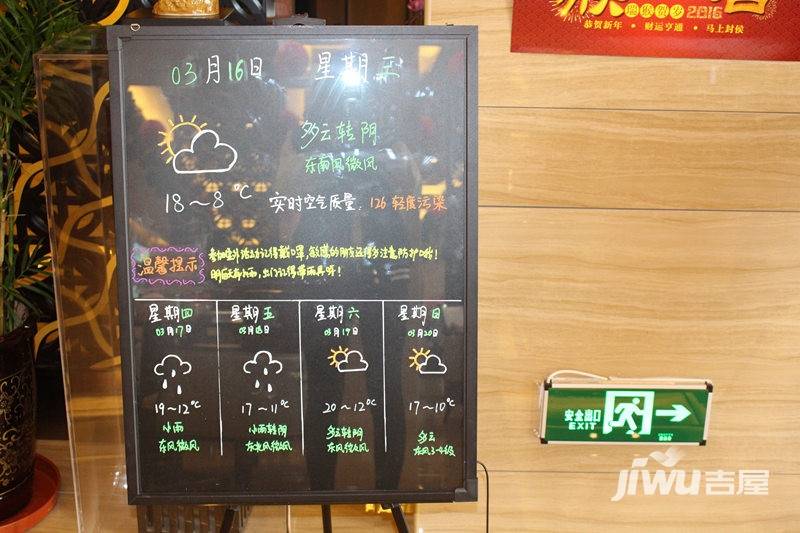 瑞猴贺岁 2016
恭贺新年 • 财运亨通 • 马上封侯
03月16日 星期三
多云转阴
东南风微风
18~8°C 实时空气质量:126 轻度污染
温馨提示
参加室外活动记得戴口罩,敏感的朋友还得多注意防护哈!
明日有小雨,出门记得带雨具呀!
星期四
03月17日
19~12°C
小雨
东风微风
星期五
03月18日
17~11°C
小雨转阴
东北风微风
星期六
03月19日
20~12°C
多云转阴
东风微风
星期日
03月20日
17~10°C
多云
东风3-4级
安全出口
EXIT
JIWU吉屋